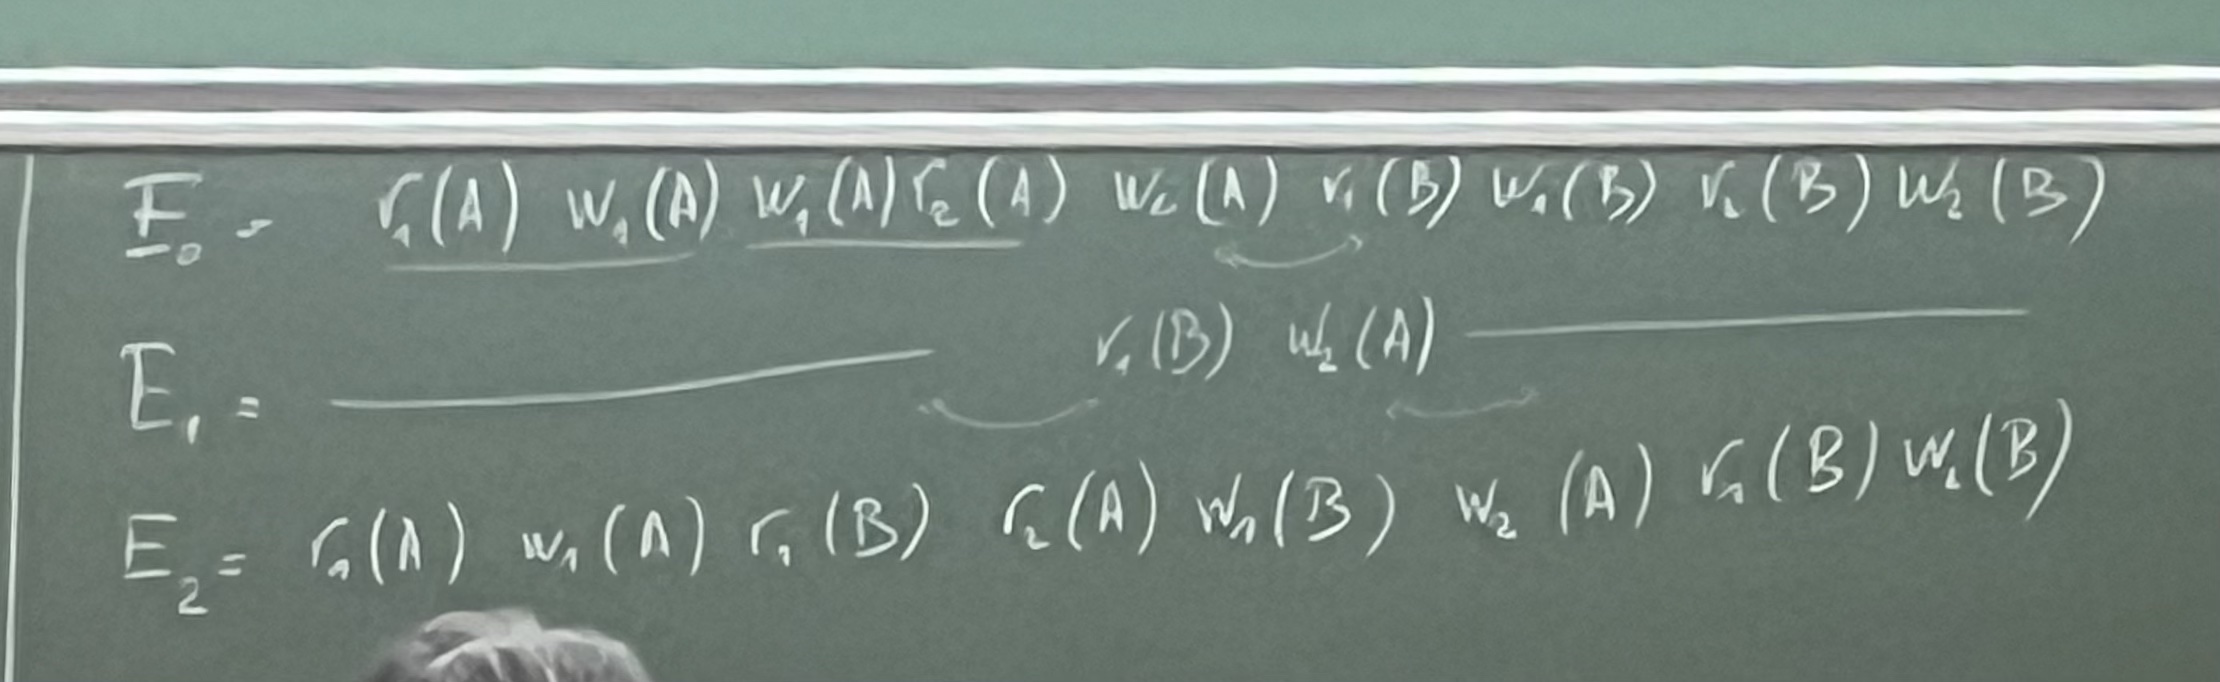 E₀ = r₁(A) w₁(A) w₁(A) r₂(A) w₂(A) r₁(B) w₁(B) r₂(B) w₂(B)
E₁ = r₁(B) w₂(A)
E₂ = r₁(A) w₁(A) r₁(B) r₂(A) w₁(B) w₂(A) r₂(B) w₂(B)